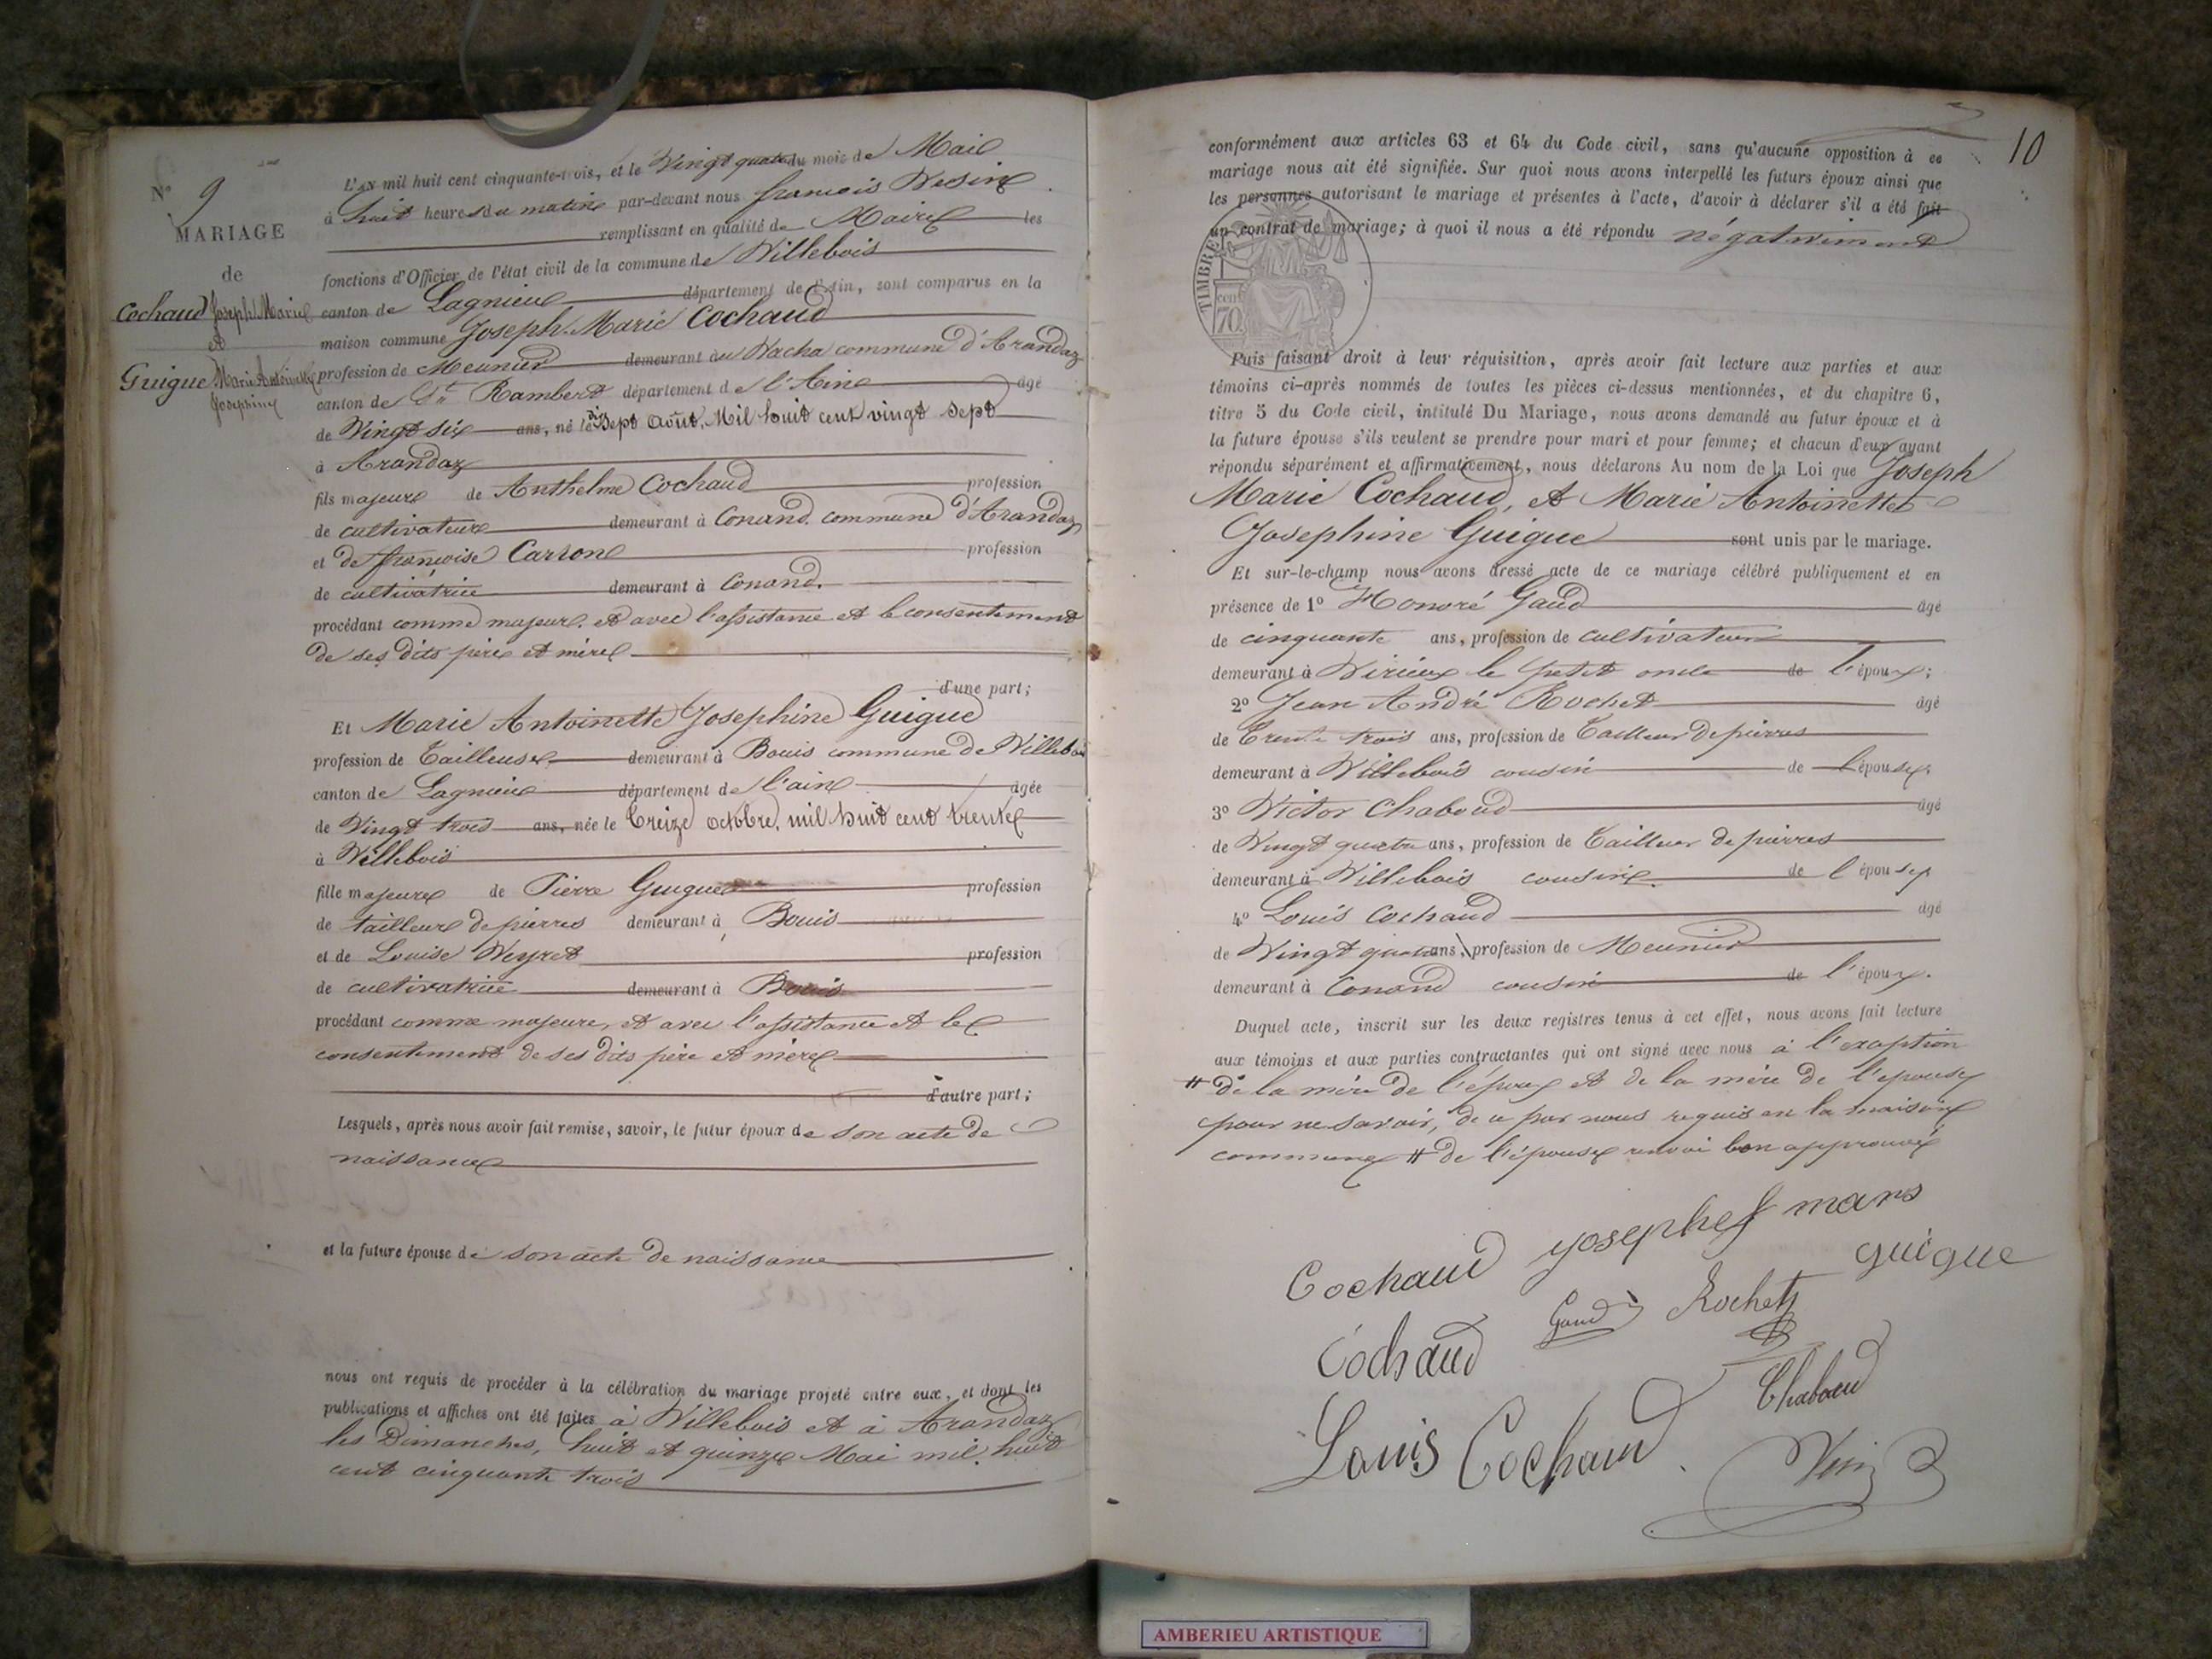 N° 9
MARIAGE
de
Cochaud Joseph Marie
et
Guigue Marie Antoinette
Josephine
L'an mil huit cent cinquante-trois, et le Vingt quatre du mois de Mai
à huit heures du matin par-devant nous françois Vesin
remplissant en qualité de Maire les
fonctions d'Officier de l'état civil de la commune de Villebois
canton de Lagnieu département de l'Ain, sont comparus en la
maison commune Joseph Marie Cochaud
profession de Meunier demeurant au Vacha commune d'Arandaz
canton de St Rambert département de l'Ain âgé
de Vingt six ans, né le Dix Sept Août, Mil huit cent vingt sept
à Arandaz
fils majeur de Anthelme Cochaud profession
de cultivateur demeurant à Conand commune d'Arandaz
et de françoise Carron profession
de cultivatrice demeurant à Conand.
procédant comme majeur, et avec l'assistance et le consentement
de ses dits père et mère
d'une part;
Et Marie Antoinette Josephine Guigue
profession de Tailleuse demeurant à Bouis commune de Villebois
canton de Lagnieu département de l'ain âgée
de Vingt trois ans, née le Treize octobre, mil huit cent trente
à Villebois
fille majeure de Pierre Guigue profession
de tailleur de pierres demeurant à Bouis
et de Louise Veyret profession
de cultivatrice demeurant à Bouis
procédant comme majeure, et avec l'assistance et le
consentement de ses dits père et mère
d'autre part;
Lesquels, après nous avoir fait remise, savoir, le futur époux de son acte de
naissance
et la future épouse de son acte de naissance
nous ont requis de procéder à la célébration du mariage projeté entre eux, et dont les
publications et affiches ont été faites à Villebois et à Arandaz
les Dimanches, huit et quinze Mai mil huit
cent cinquante trois
10
conformément aux articles 63 et 64 du Code civil, sans qu'aucune opposition à ce
mariage nous ait été signifiée. Sur quoi nous avons interpellé les futurs époux ainsi que
les personnes autorisant le mariage et présentes à l'acte, d'avoir à déclarer s'il a été fait
un contrat de mariage; à quoi il nous a été répondu négativement
TIMBRE
cent
70
Puis faisant droit à leur réquisition, après avoir fait lecture aux parties et aux
témoins ci-après nommés de toutes les pièces ci-dessus mentionnées, et du chapitre 6,
titre 5 du Code civil, intitulé Du Mariage, nous avons demandé au futur époux et à
la future épouse s'ils veulent se prendre pour mari et pour femme; et chacun d'eux ayant
répondu séparément et affirmativement, nous déclarons Au nom de la Loi que Joseph
Marie Cochaud, et Marie Antoinette
Josephine Guigue sont unis par le mariage.
Et sur-le-champ nous avons dressé acte de ce mariage célébré publiquement et en
présence de 1° Honoré Gaud âgé
de cinquante ans, profession de cultivateur
demeurant à Virieux le petit oncle de l'époux;
2° Jean André Rochet âgé
de Trente trois ans, profession de Tailleur de pierres
demeurant à Villebois cousin de l'épouse;
3° Victor Chaboud âgé
de Vingt quatre ans, profession de Tailleur de pierres
demeurant à Villebois cousin de l'épouse
4° Louis Cochaud âgé
de Vingt quatre ans, profession de Meunier
demeurant à Conand cousin de l'époux.
Duquel acte, inscrit sur les deux registres tenus à cet effet, nous avons fait lecture
aux témoins et aux parties contractantes qui ont signé avec nous à l'exception
# de la mère de l'époux et de la mère de l'épouse
pour ne savoir, de ce par nous requis en la maison
commune # de l'épouse renvoi bon approuvé
Cochaud josephe mars
guigue
Cochaud Gaud Rochet
Chaboud
Louis Cochaud Vesin
AMBERIEU ARTISTIQUE